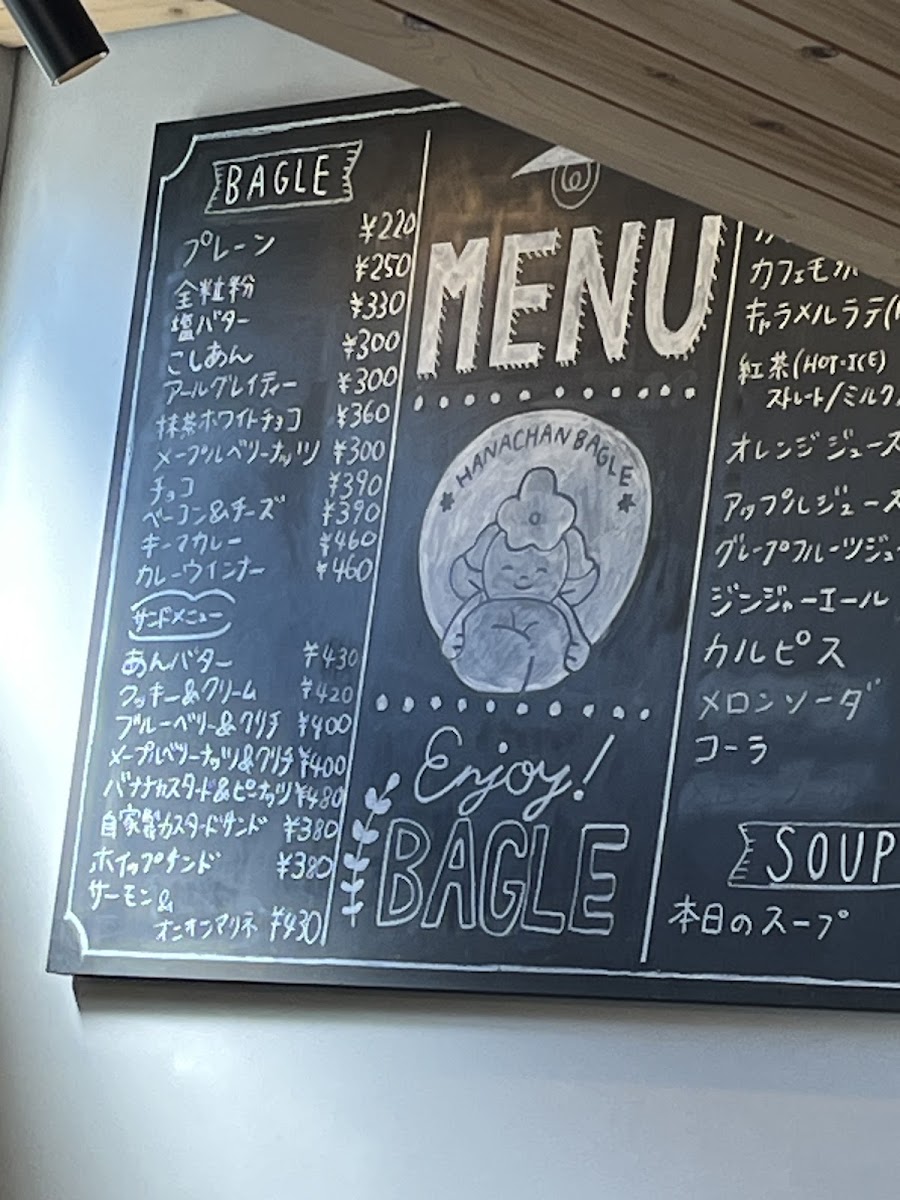 BAGLE
プレーン ¥220
全粒粉 ¥250
塩バター ¥330
こしあん ¥300
アールグレイティー ¥300
抹茶ホワイトチョコ ¥360
メープルベリーナッツ ¥300
チョコ ¥390
ベーコン&チーズ ¥390
キーマカレー ¥460
カレーウインナー ¥460
サンドメニュー
あんバター ¥430
クッキー&クリーム ¥420
ブルーベリー&クリチ ¥400
メープルベリーナッツ&クリチ ¥400
バナナカスタード&ピーナッツ ¥480
自家製カスタードサンド ¥380
ホイップサンド ¥380
サーモン&
オニオンマリネ ¥430
MENU
HANACHAN BAGLE
Enjoy!
BAGLE
カフェモカ
キャラメルラテ(
紅茶(HOT・ICE)
ストレート/ミルク
オレンジジュース
アップルジュース
グレープフルーツジュー
ジンジャーエール
カルピス
メロンソーダ
コーラ
SOUP
本日のスープ